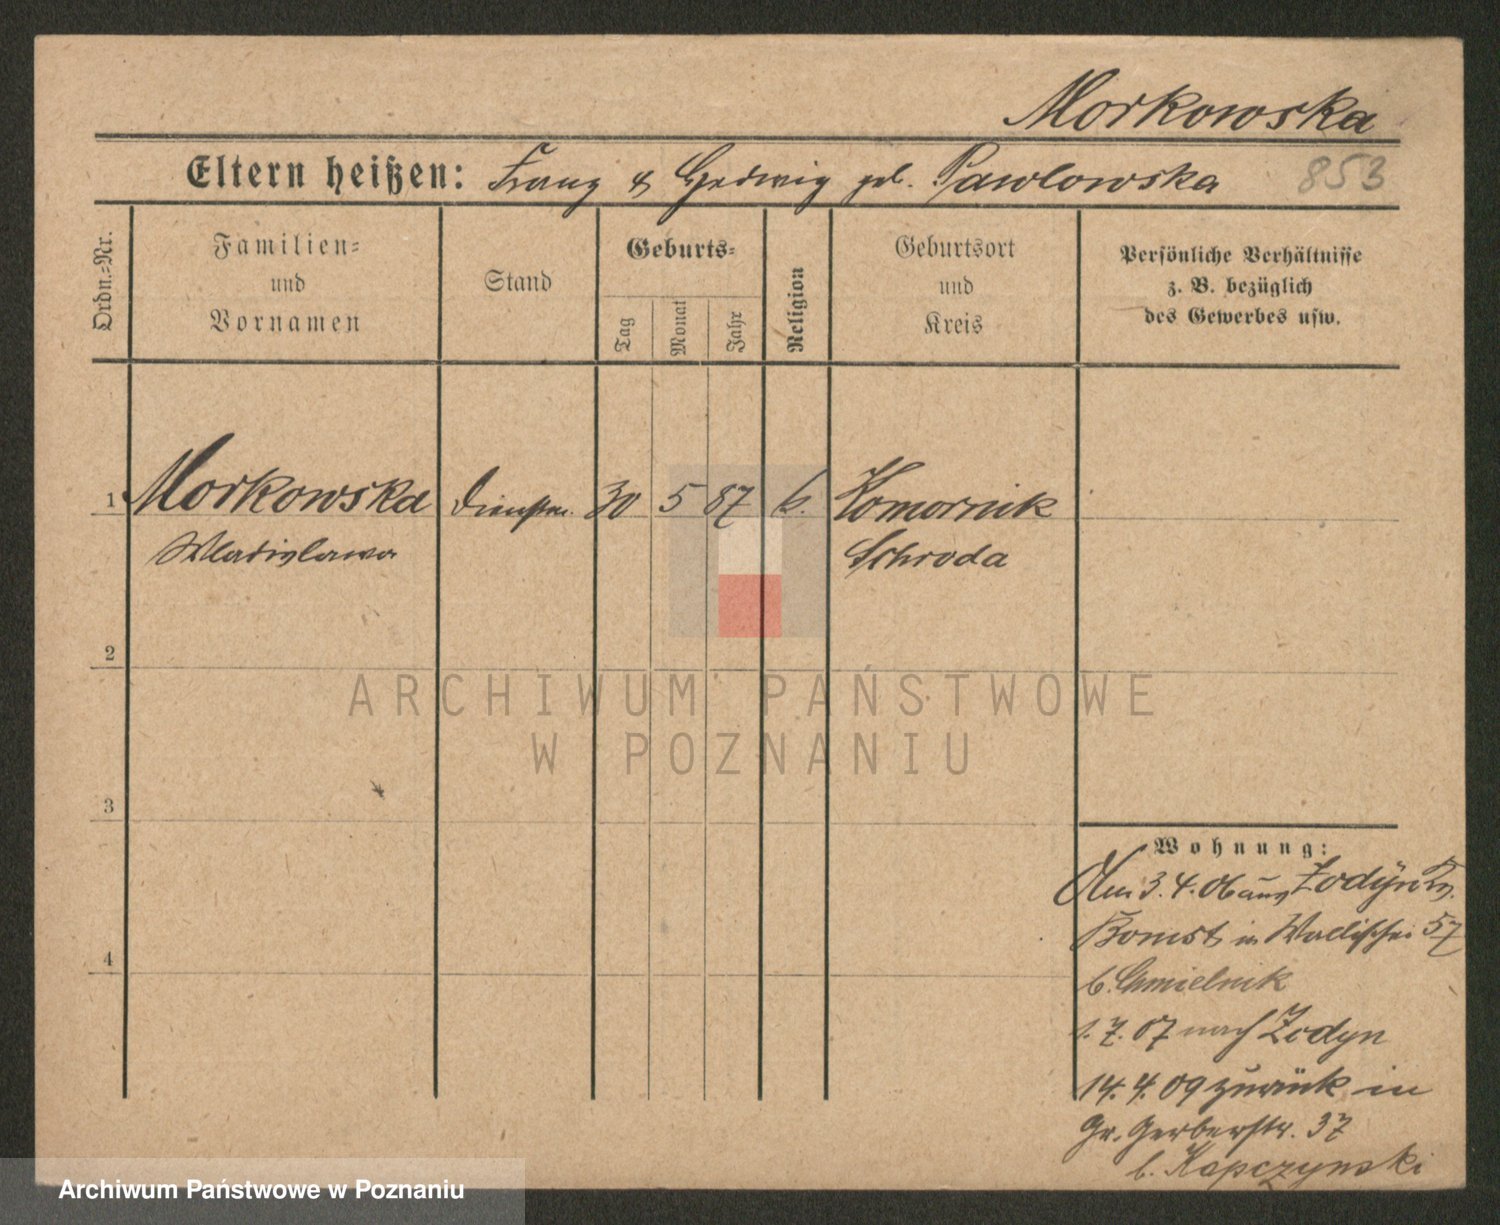 Morkowska
Eltern heißen: Franz & Hedwig geb. Pawlowska 853
Ordn.=Nr.
Familien=
und
Vornamen
Stand
Geburts=
Tag
Monat
Jahr
Religion
Geburtsort
und
Kreis
Persönliche Verhältnisse
z. B. bezüglich
des Gewerbes usw.
1 Morkowska Dienstm. 30 5 87 k. Komornik
Wladislawa Schroda
2
ARCHIWUM PAŃSTWOWE
W POZNANIU
3
4
Wohnung:
Am 3.4.06 aus Zodyn Kr.
Bomst in Wallischei 57
b. Chmielnik
1.7.07 nach Zodyn
14.4.09 zurück in
Gr. Gerberstr. 37
b. Kapczynski
Archiwum Państwowe w Poznaniu